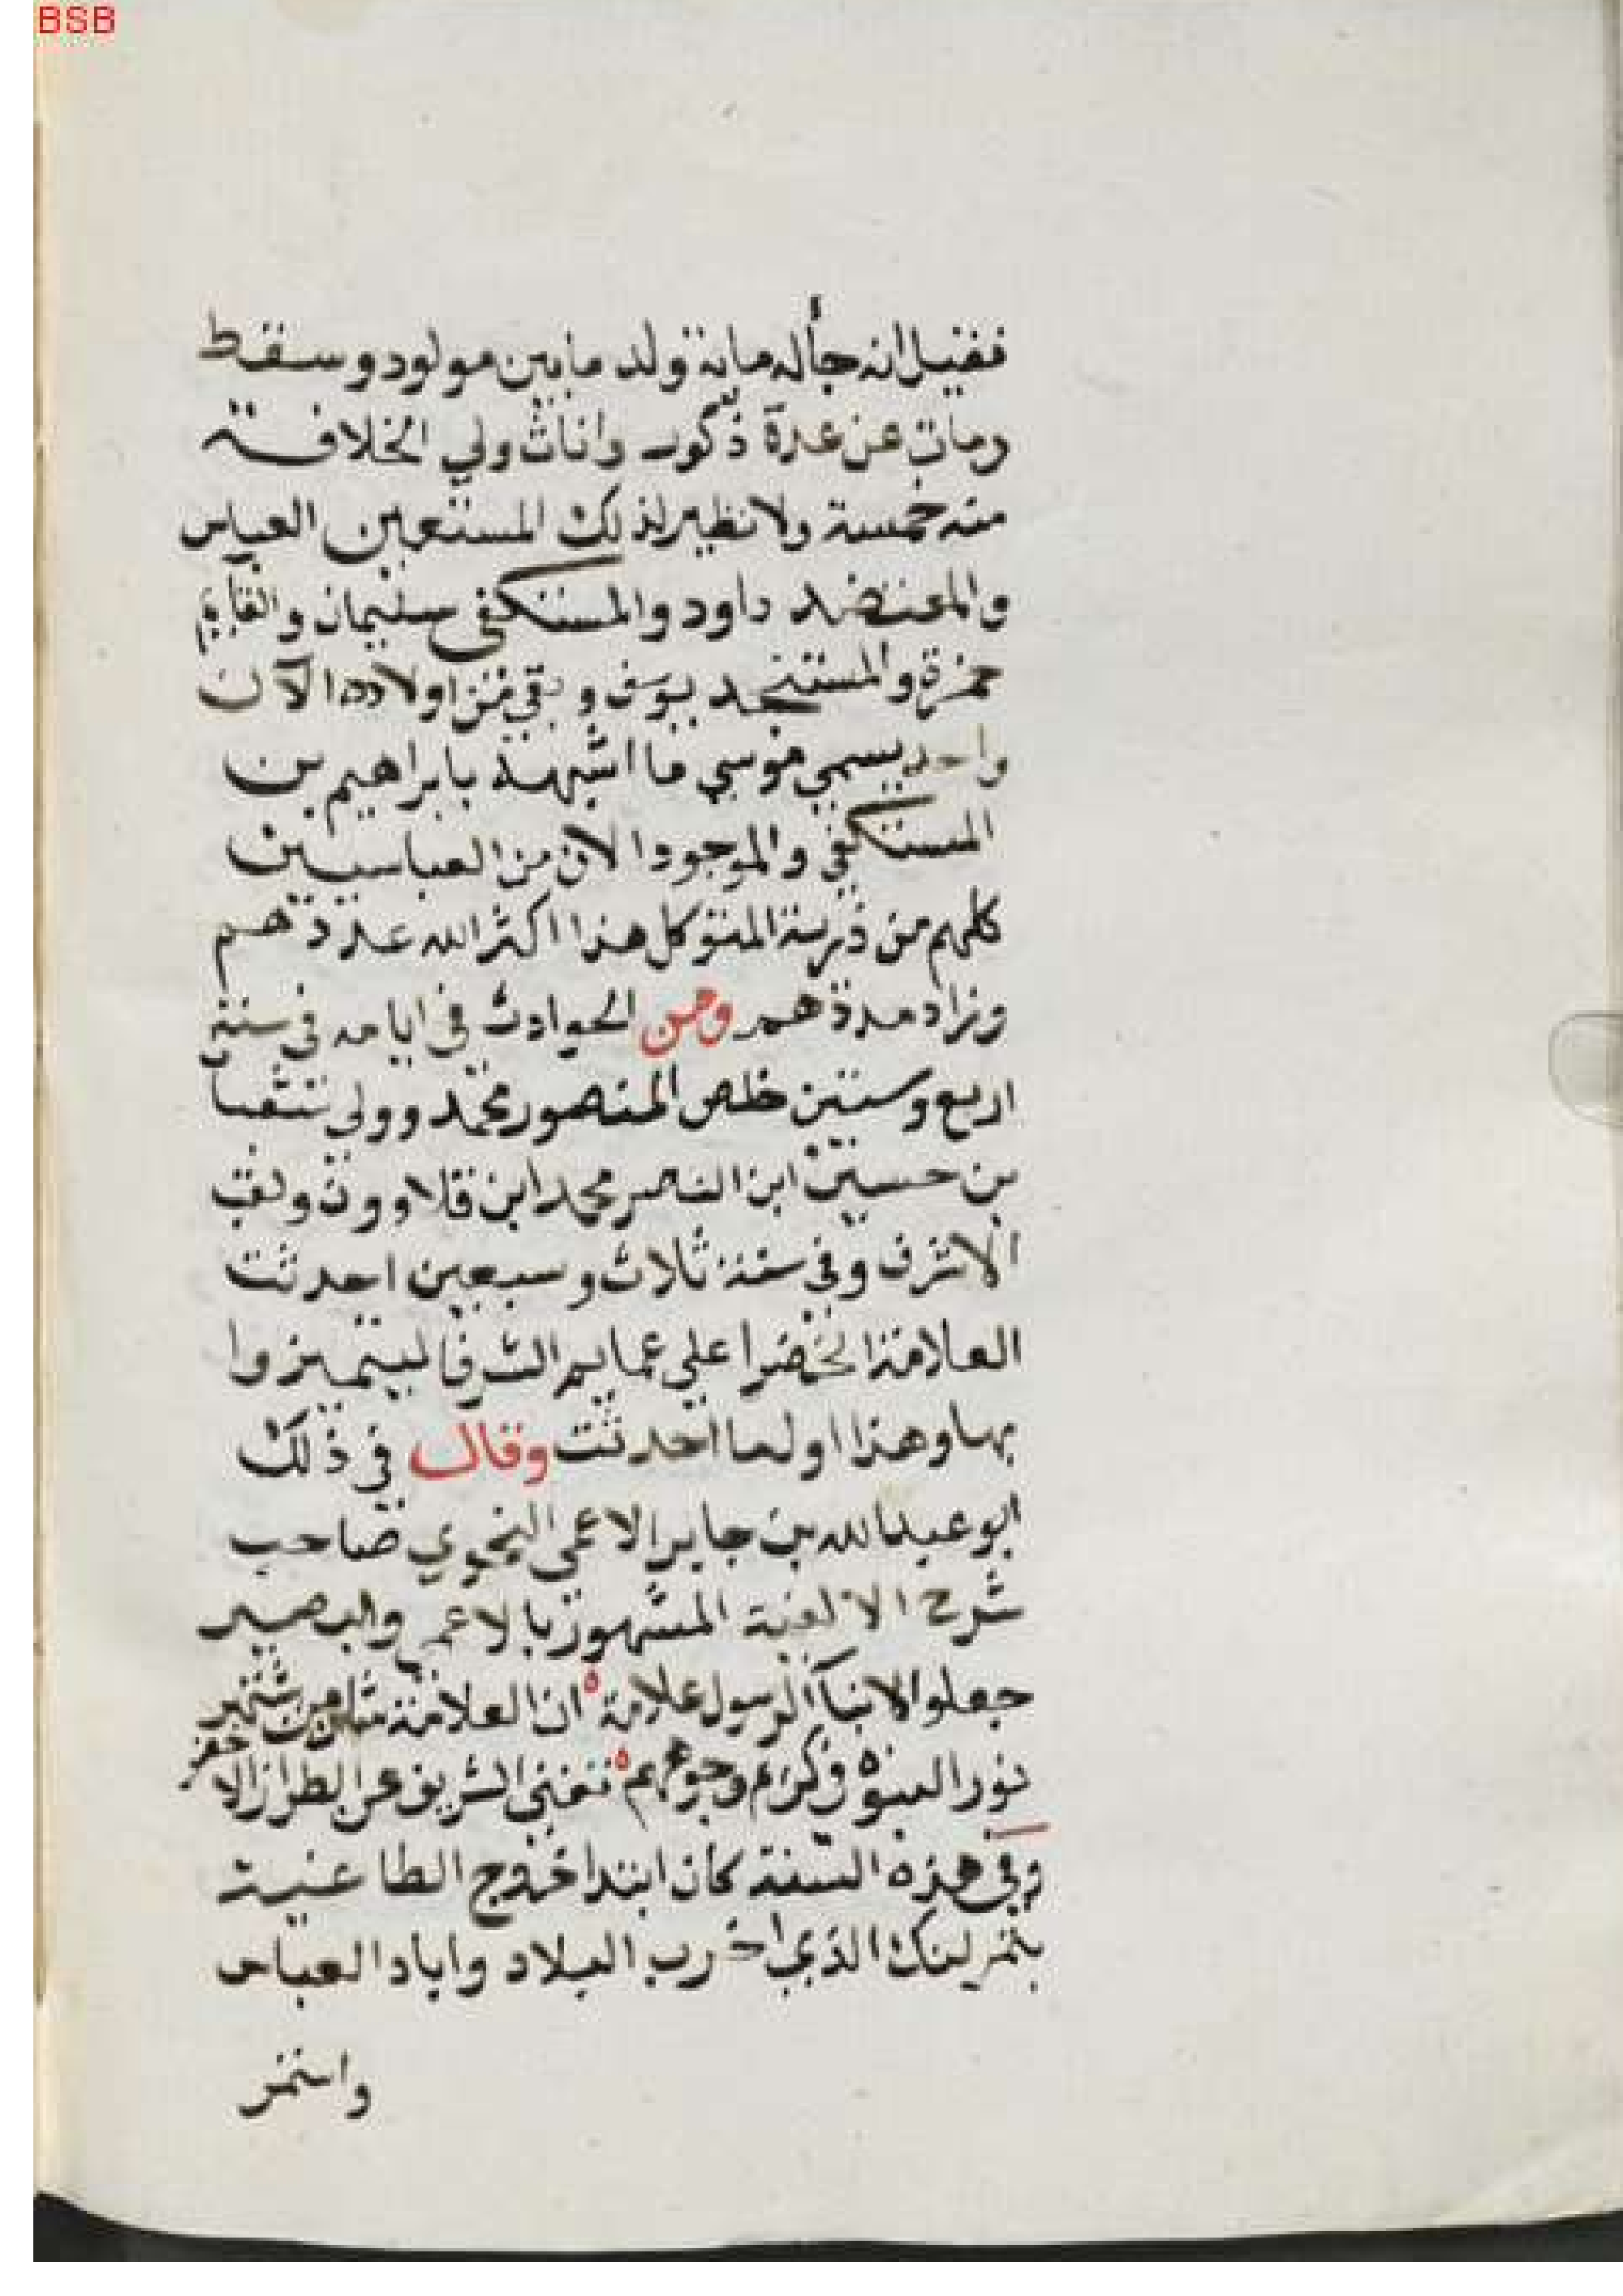 BSB
فقيل انه جأله ماية ولد ما بين مولود وسقط
ومات عن عدة ذكور واناث ولي الخلافة
منه خمسة ولا نظير لذلك المستعين العباس
والمعتضد داود والمستكفي سليمان والقايم
حمزة والمستنجد يوسف وبقي من اولاده الآن
واحد يسمي موسي ما اشبهه بابراهيم بن
المستكفي والموجود الان من العباسيين
كلهم من ذرية المتوكل هذا اكثر الله عددهم
وزاد مددهم ومن الحوادث في ايامه في سنة
اربع وستين خلع المنصور محمد وولي شعبا
بن حسين ابن الناصر محمد ابن قلاوون ولقب
الاشرف وفي سنة ثلاث وسبعين احدثت
العلامة الخضرا علي عمايم الشرفا ليتميزوا
بها وهذا اول ما احدثت وقال في ذلك
ابو عبد الله بن جابر الاعمى النحوي صاحب
شرح الالفية المشهور بالاعمى والبصير
جعلوا الابنآ الرسول علامة ان العلامة شان من يشهر
نور النبوة في كريم وجوههم تغني الشريف عن الطراز الاخضر
وفي هذه السنة كان ابتدا خروج الطاغية
بتمرلنك الذي اخرب البلاد واباد العباس
واستمر